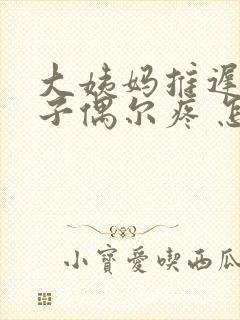 大姨妈推遲
子偶尔疼 怎
小寶愛喫西瓜